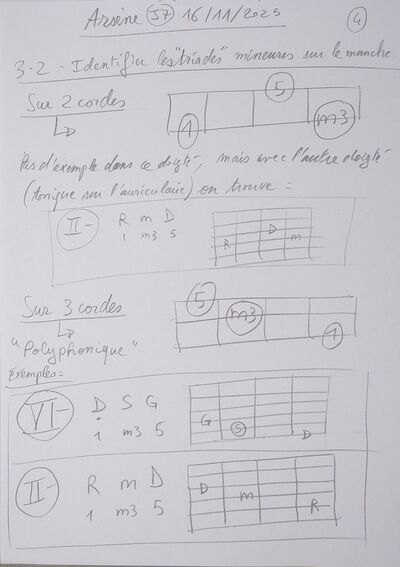 Arsène 57 16/11/2025
4
3-2 - Identifier les "triades" mineures sur le manche
Sur 2 cordes
5
1
m3
Pas d'exemple dans ce doigté, mais avec l'autre doigté
(tonique sur l'auriculaire) on trouve =
II- R m D
1 m3 5
D
R m
Sur 3 cordes
5
m3
1
"Polyphonique"
Exemples =
VI- D S G
1 m3 5
G
S
D
II- R m D
1 m3 5
D
m
R